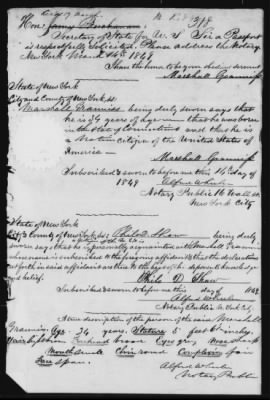 Hon James Buchanan
Secretary of State for U. S. Sir a Passport
is respectfully Solicited. Please address the Notary
New York March 14th 1849
I have the honor to be your obed servant
Marshall Granniss
State of New York
City and County of New York ss:
Marshall Granniss being duly sworn says that
he is 34 years of age — that he was born
in the State of Connecticut and that he is
a Native Citizen of the United States of
America —
Marshall Granniss
Subscribed & sworn to before me this 14 day of
1849
Notary Public 16 Wall St
New York City
State of New York
City & County of New York ss: Philo D Shaw being duly
sworn says that he is personally acquainted with Marshall Granniss
whose name is subscribed to the foregoing affidavit & that the declarations
set forth in said affidavit are true to the best of his deponents knowledge
and belief.
Philo D Shaw
Subscribed & sworn to before me this day of 1849
Notary Public
description of the person of the Marshall
Granniss Age. 34 years. Stature 5 feet 6 inches
Hair Eyes grey, Nose sharp
Mouth small Chin round Complexion fair
Face spare.
Notary Public